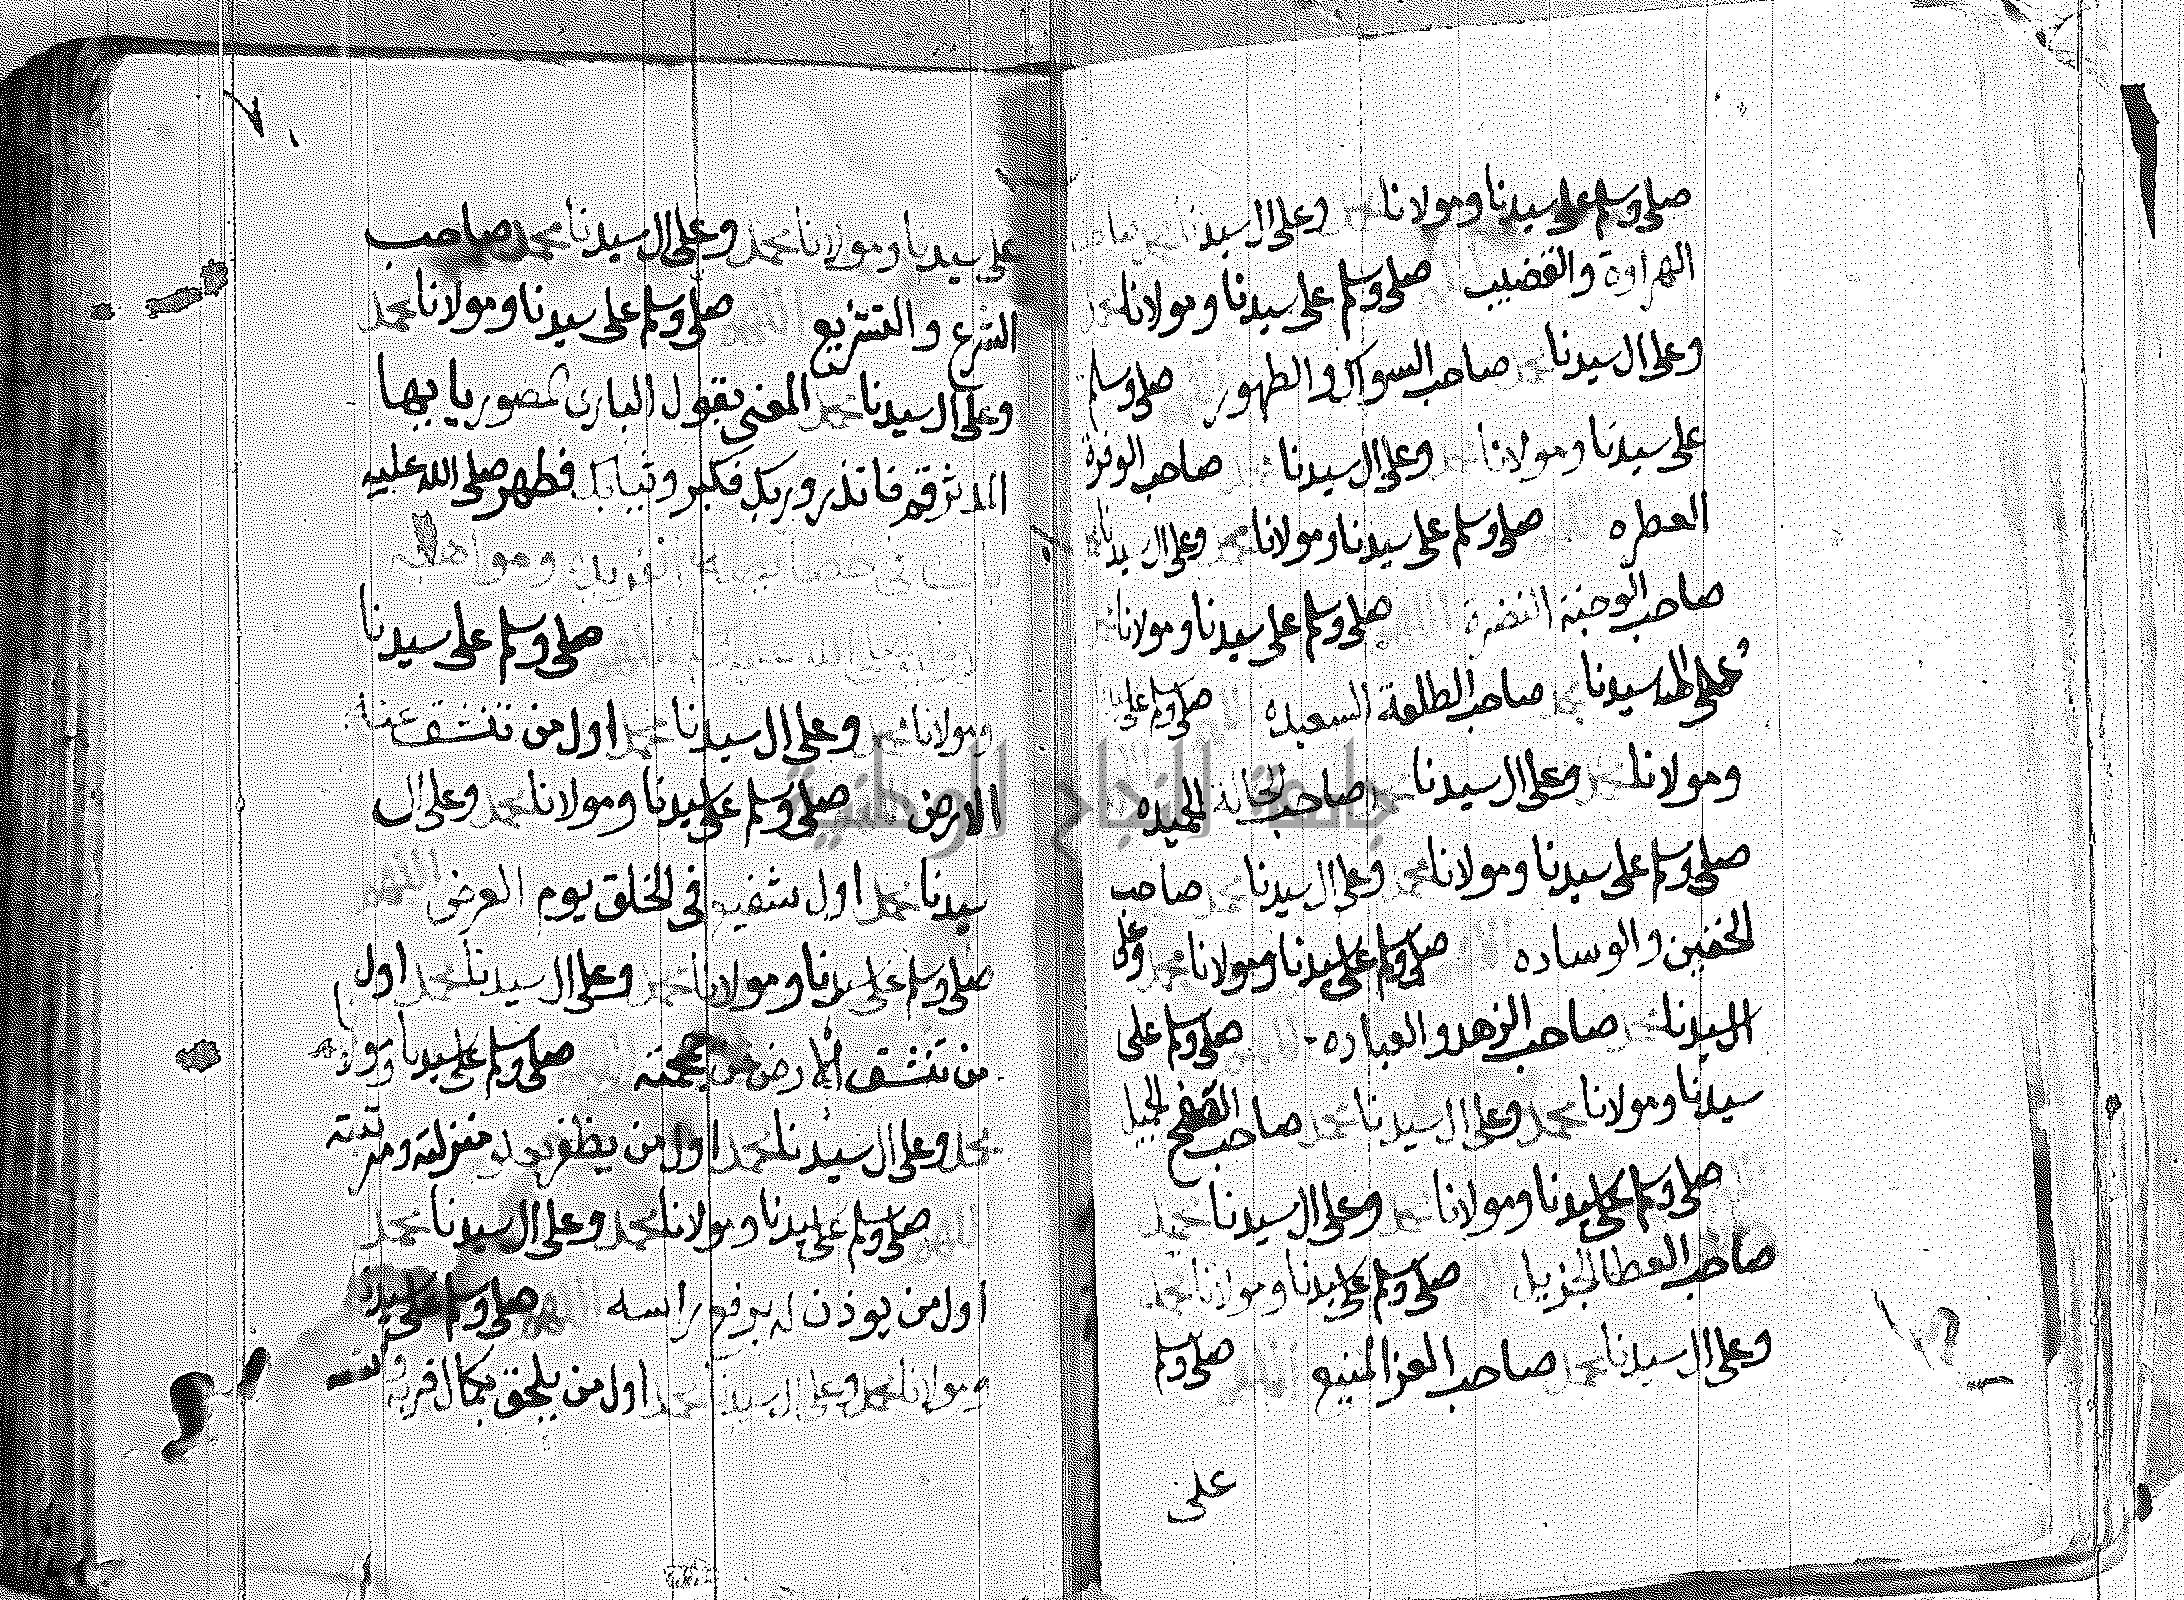 صلى وسلم على سيدنا ومولانا محمد وعلى ال سيدنا محمد صاحب
الهراوة والقضيب صلى وسلم على سيدنا ومولانا محمد
وعلى ال سيدنا محمد صاحب السواك والطهور صلى وسلم
على سيدنا ومولانا محمد وعلى ال سيدنا محمد صاحب الوفرة
العطره صلى وسلم على سيدنا ومولانا محمد وعلى ال سيدنا محمد
صاحب الوجنة النضرة اللهم صلى وسلم على سيدنا ومولانا محمد
وعلى سيدنا محمد صاحب الطلعة السعيده صلى وسلم على
ومولانا محمد وعلى ال سيدنا محمد صاحب الحميده
صلى وسلم على سيدنا ومولانا محمد وعلى ال سيدنا محمد صاحب
الخفين والوساده صلى وسلم على سيدنا ومولانا محمد وعلى
ال سيدنا محمد صاحب الزهد والعباده صلى وسلم على
سيدنا ومولانا محمد وعلى ال سيدنا محمد صاحب الصفح الجميل
صلى وسلم على سيدنا ومولانا محمد وعلى ال سيدنا محمد
صاحب العطا الجزيل صلى وسلم على سيدنا ومولانا محمد
وعلى ال سيدنا محمد صاحب العز المنيع اللهم صلى وسلم
على
على سيدنا ومولانا محمد وعلى ال سيدنا محمد صاحب
الشرع والتشريع اللهم صلى وسلم على سيدنا ومولانا محمد
وعلى ال سيدنا محمد المعنى بقول البارى المصور يا ايها
المدثر قم فانذر وربك فكبر وثيابك فطهر صلى الله عليه
صلى وسلم على سيدنا
ومولانا محمد وعلى ال سيدنا محمد اول من تنشق عنه
الارض صلى وسلم على سيدنا ومولانا محمد وعلى ال
سيدنا محمد اول شفيع فى الخلق يوم العرض اللهم
صلى وسلم على سيدنا ومولانا محمد وعلى ال سيدنا محمد اول
من تنشق الارض عن جمجمته صلى وسلم على سيدنا ومولانا
محمد وعلى ال سيدنا محمد اول من يظفر منزلته ومرتبته
اللهم صلى وسلم على سيدنا ومولانا محمد وعلى ال سيدنا محمد
اول من يوذن له برفع راسه اللهم صلى وسلم على سيدنا
ومولانا محمد وعلى ال سيدنا محمد اول من يلحق بكمال قربه وانسه
جامعة النجاح الوطنية